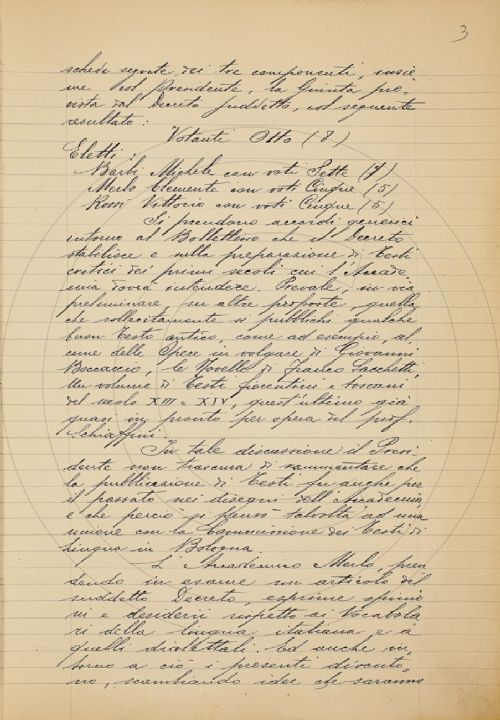 3
schede segrete dei tre componenti, insie-
me col Presidente, la Giunta pre-
vista dal Decreto suddetto, col seguente
resultato:
Votanti Otto (8)
Eletti:
Barbi Michele con voti Sette (7)
Merlo Clemente con voti Cinque (5)
Rossi Vittorio con voti Cinque (5)
Si prendono accordi generici
intorno al Bollettino che il Decreto
stabilisce e sulla preparazione di Testi
critici dei primi secoli cui l'Accade-
mia dovrà intendere. Prevale, in via
preliminare, su altre proposte, quella
che sollecitamente si pubblichi qualche
buon Testo antico, come ad esempio, al-
cune delle Opere in volgare di Giovanni
Boccaccio, le Novelle di Franco Sacchetti,
un volume di Testi fiorentini e toscani
del secolo XIII e XIV, quest'ultimo già
quasi in pronto per opera del prof.
Schiaffini.
In tale discussione il Presi-
dente non trascura di rammentare che
la pubblicazione di Testi fu anche per
il passato nei disegni dell'Accademia,
e che perciò si pensò talvolta ad una
unione con la Commissione dei Testi di
Lingua in Bologna.
L'Accademico Merlo, pren-
dendo in esame un articolo del
suddetto Decreto, esprime opinio-
ni e desiderii rispetto ai Vocabola-
ri della lingua italiana e a
quelli dialettali. Ed anche in-
torno a ciò i presenti discuto-
no, scambiando idee che saranno